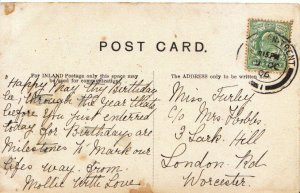 POST CARD.
For INLAND Postage only this space may be used for communication.
THE ADDRESS ONLY to be written
Happy May thy Birthday
be, through the year that's
before you just entered
today for Birthdays are
Milestones to Mark our
lifes way. From
Mollie With Love
Miss Turley
c/o Mrs Hobbs
2 Lark Hill
London Rd
Worcester.